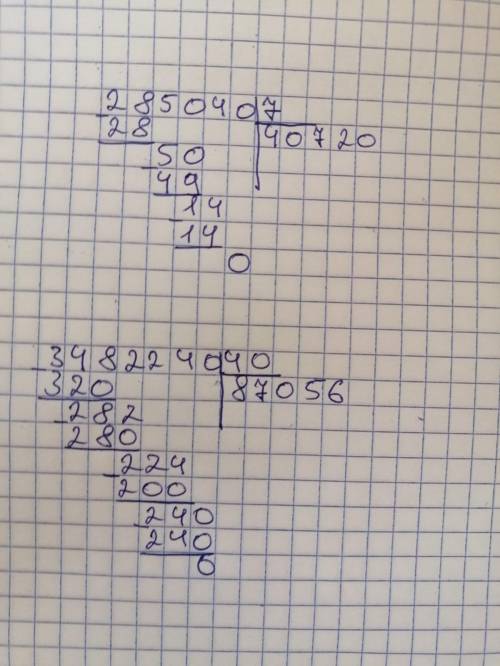 285040 7
28 40720
50
49
14
14
0
3482240 40
320 87056
282
280
224
200
240
240
0